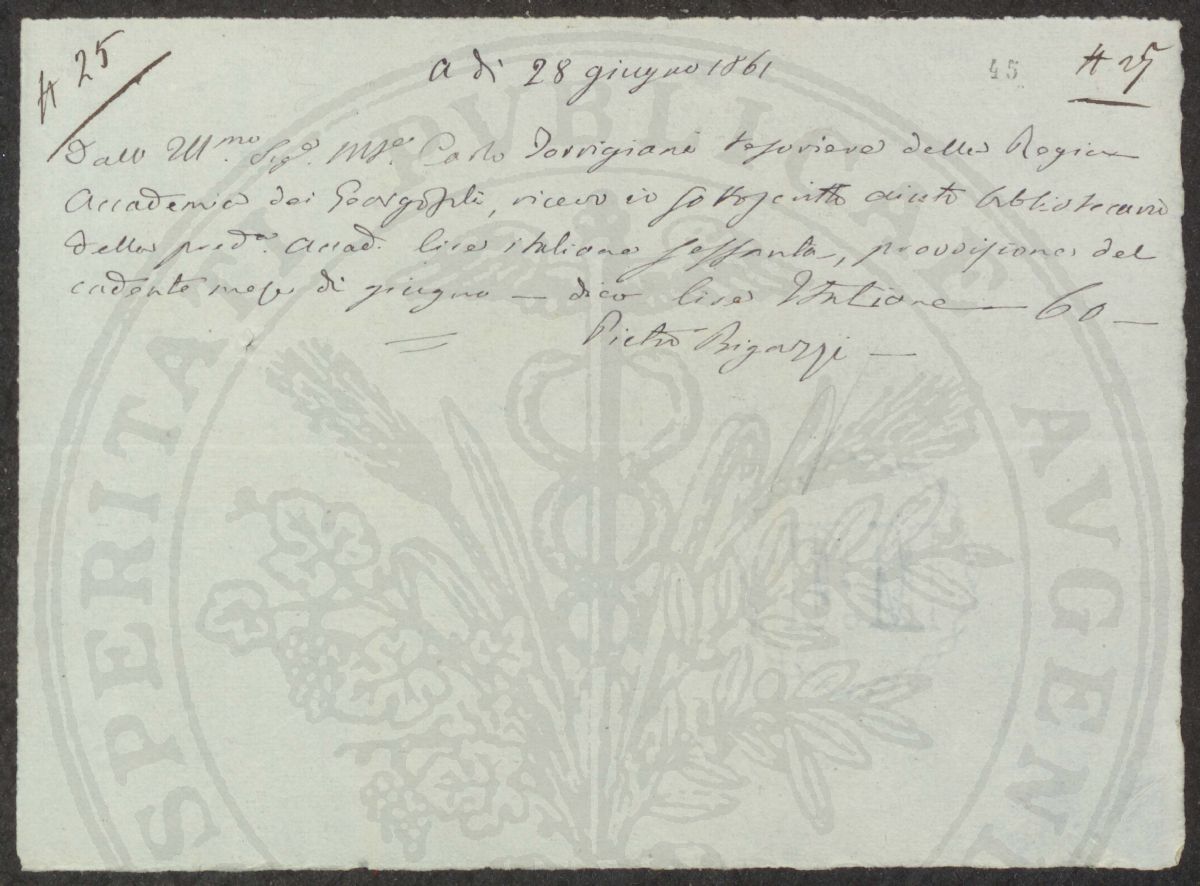 # 25
A dì 28 giugno 1861
45
# 25
Dall' Ill.mo Sig.e M.se Carlo Torrigiani tesoriere della Regia
Accademia dei Georgofili, ricevo io sottoscritto aiuto bibliotecario
della pred.a Accad. lire italiane sessanta, provvisione del
cadente mese di giugno — dico lire Italiane — 60 —
Pietro Bigazzi —
PROSPERITATI PVBLICAE AVGENDAE